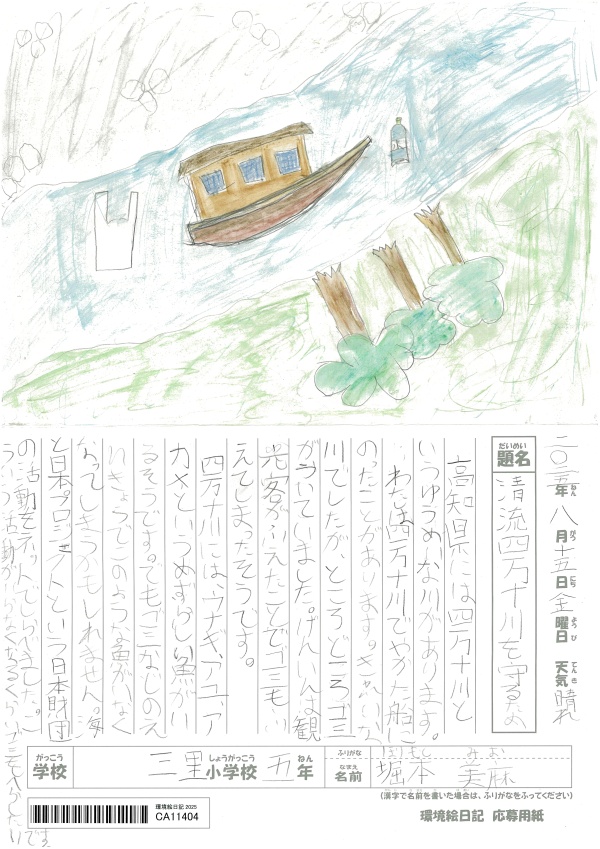 二〇二五年八月十五日金曜日 天気 晴れ
ねん がつ にち ようび てんき
だいめい
題名 清流四万十川を守るため
高知県には四万十川と
いうゆうめな川があります。
わたしは四万十川でやかた船に
のったことがあります。きれいな
川でしたが、ところどころゴミ
がういていました。げんいんは観
光客がふえたことでゴミもふ
えてしまったそうです。
四万十川には、ウナギ、アユ、ア
カメというめずらしい魚がい
るそうです。でもゴミなどのえ
いきょうでこのような魚がいなく
なってしまうかもしれません。海
と日本プロジェクトという日本財団
の活動をネットでしらべました。こ
ういう活動がいらなくなるくらいゴミをへらしたいです
がっこう しょうがっこう ねん
学校 三里小学校 五年
ふりがな ほりもと みお
なまえ
名前 堀本 美麻
(漢字で名前を書いた場合は、ふりがなをふってください)
環境絵日記 2025
CA11404
環境絵日記 応募用紙